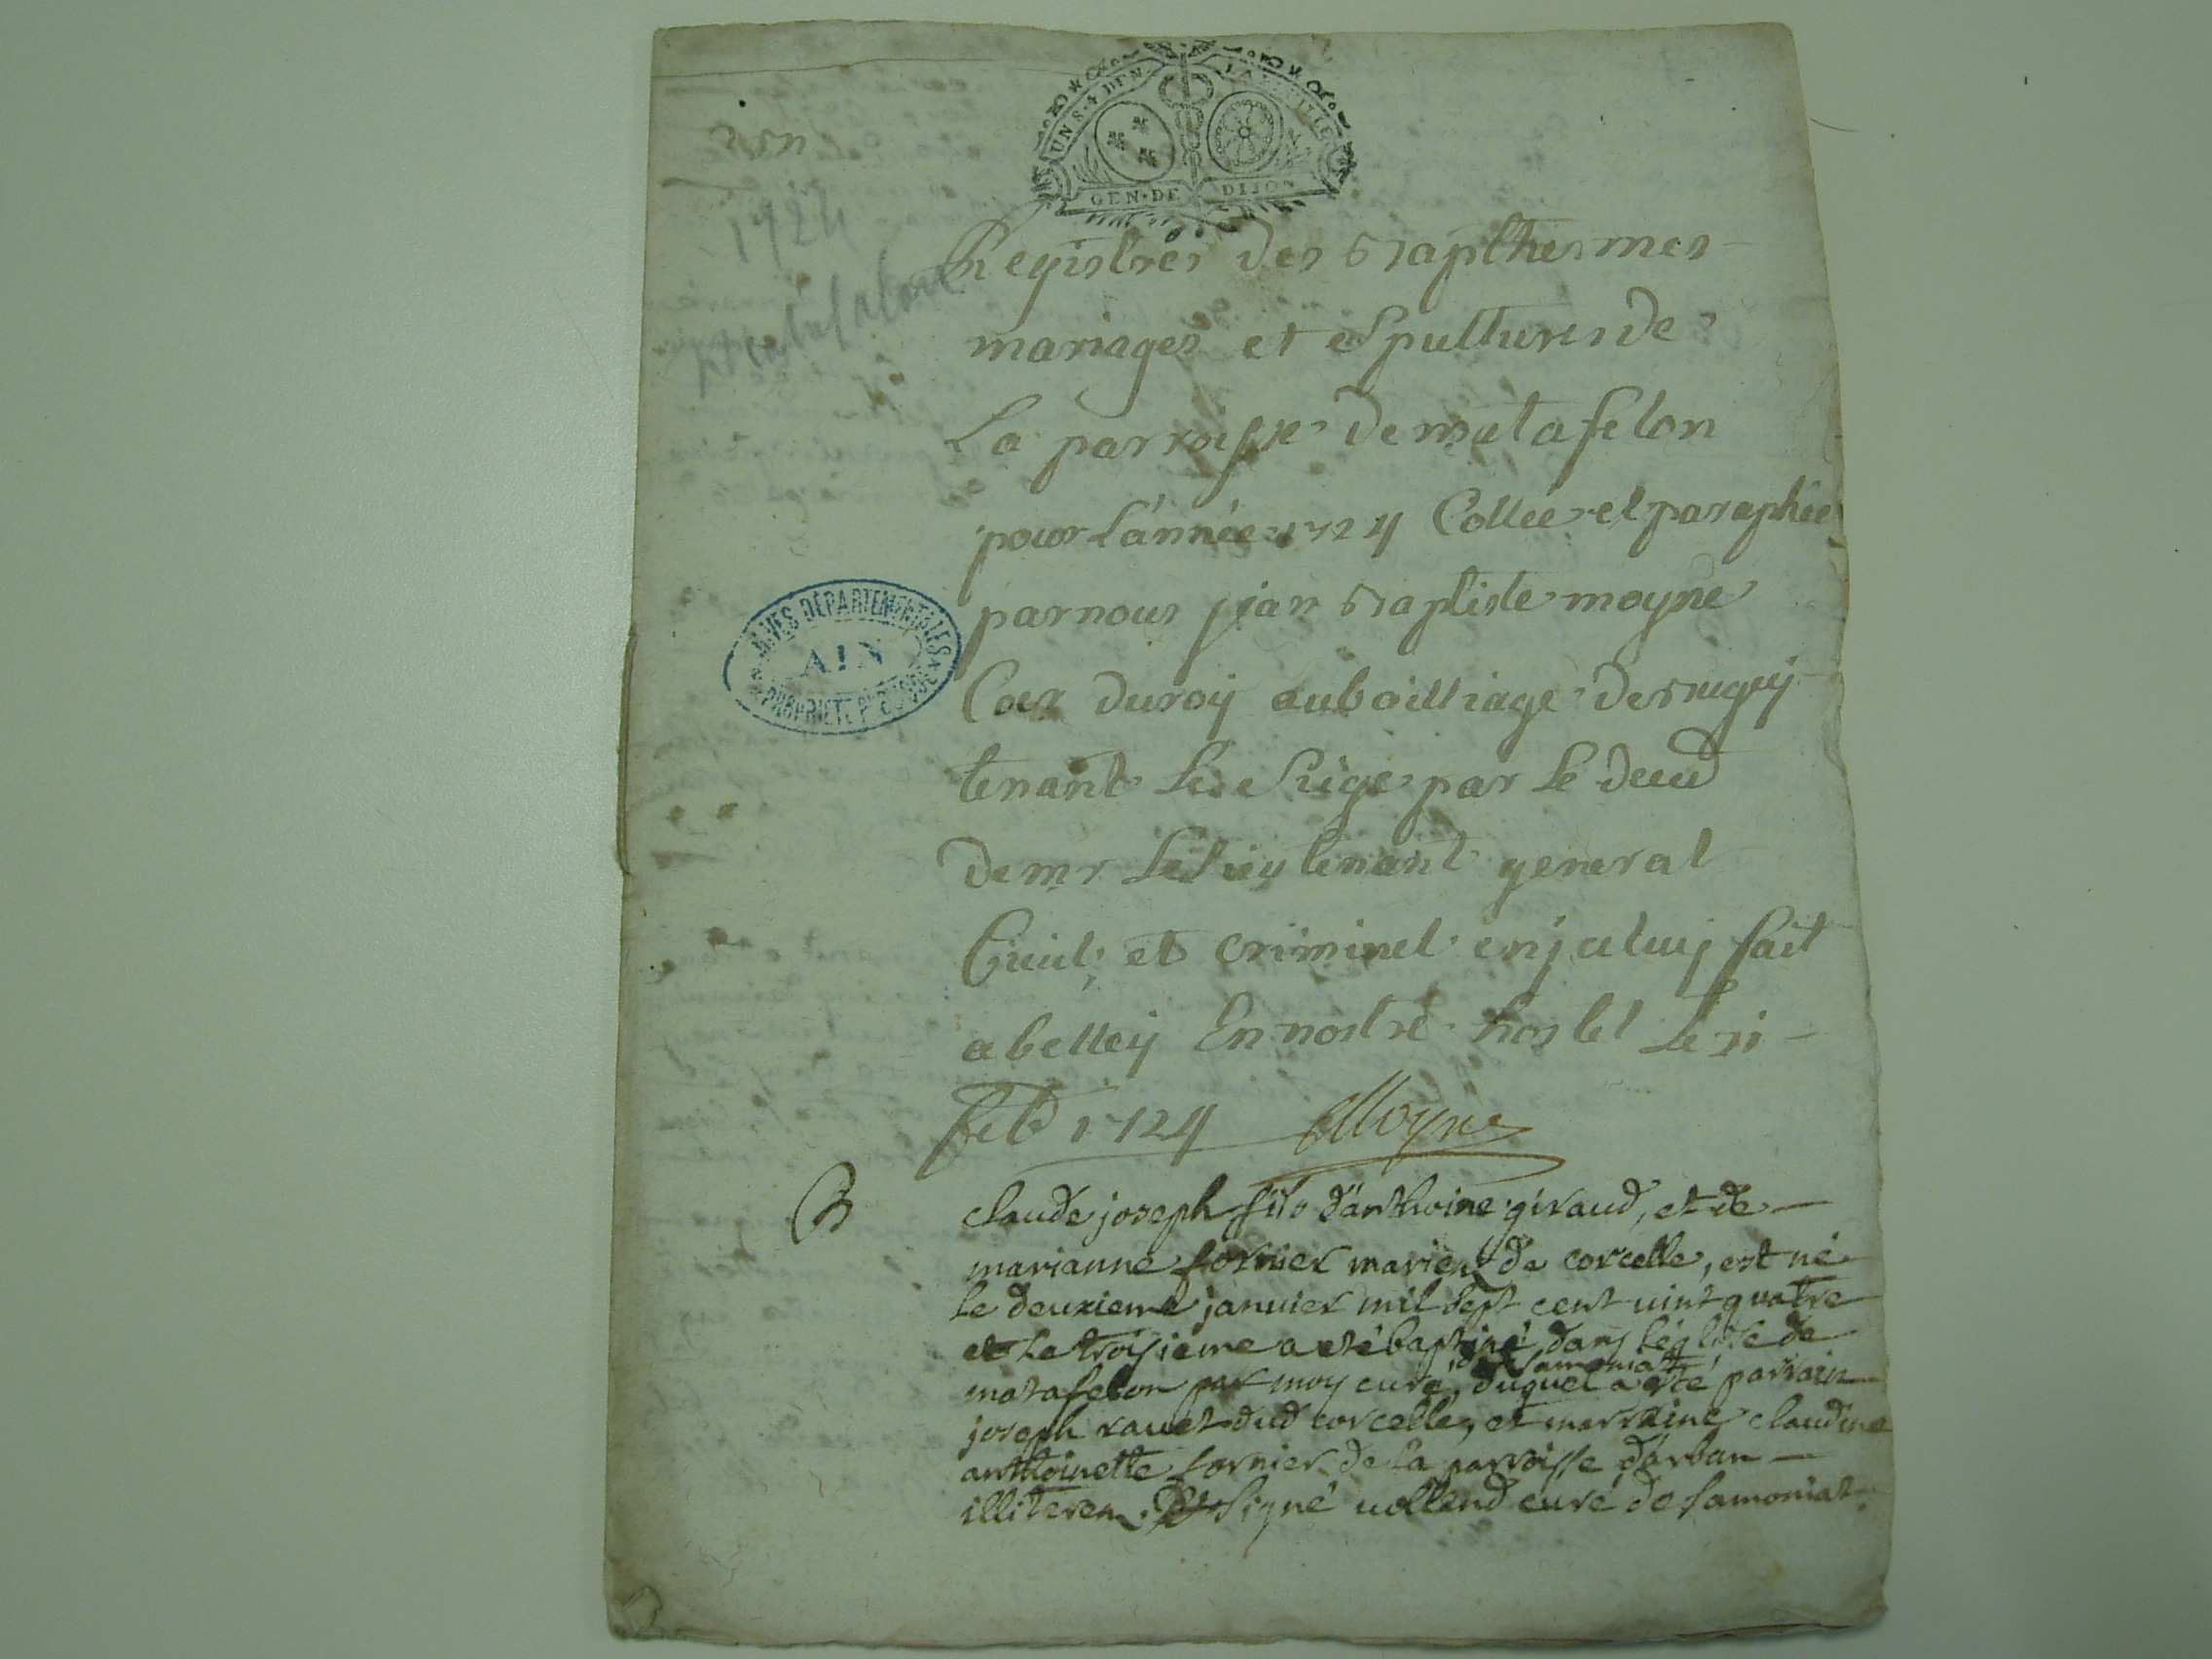 UN S. 4 DEN. LA FEUILLE
GEN. DE DIJON
1724
matafelon
Registres des Bapthesmes
mariages et Spultures de
La parroisse de matafelon
pour L'année 1724 Cottée et paraphée
par nous jean Baptiste moyne
Coer du roy au bailliage de Bugey
tenant Le Siege par Le deced
de mr Le Lieutenant general
Ciuil et criminel en jceluy fait
a belley En nostre hostel Le 11
feb 1724 Moyne
ARCHIVES DÉPARTEMENTALES
AIN
PROPRIÉTÉ PUBLIQUE
B
claude joseph fils d'anthoine giraud, et de
marianne fornier mariens de corcelle, est né
le deuxieme januier mil sept cent uint quatre
et Le troisieme a eté baptisé dans l'église de
de Samoniat
matafelon par moy curé, duquel a esté parrain
joseph rauet dud corcelle, et marraine claudine
anthoinette fornier de La parroisse d'arban
illiteres. signé uolland curé de Samoniat